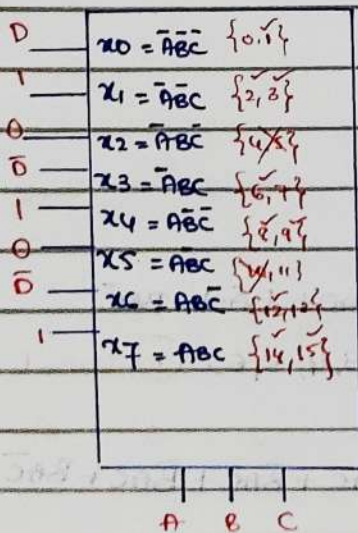 D x0 = A̅B̅C̅ {0,1}
1 x1 = A̅B̅C {2,3}
0 x2 = A̅BC̅ {4,5}
D̅ x3 = A̅BC {6,7}
1 x4 = AB̅C̅ {8,9}
0 x5 = AB̅C {10,11}
D̅ x6 = ABC̅ {12,13}
1 x7 = ABC {14,15}
A B C